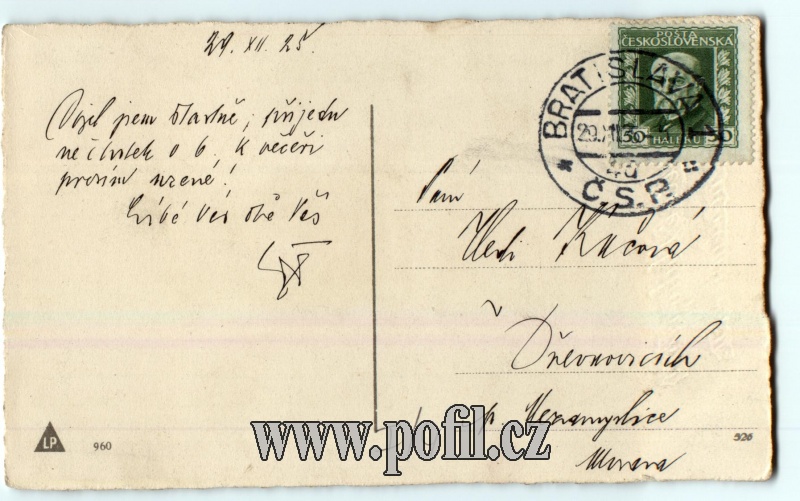 29. XII. 25.
Dojel jsem šťastně, přijedu
ve čtvrtek o 6. K večeři
prosím uzené!
Líbá Vás obě Váš
POŠTA
ČESKOSLOVENSKÁ
50
HALÉŘŮ
BRATISLAVA
29.XII.
Č.S.R.
Paní
Kučová
v
Dřevnovicích
p. Nezamyslice
Morava
LP
960
326
www.pofil.cz